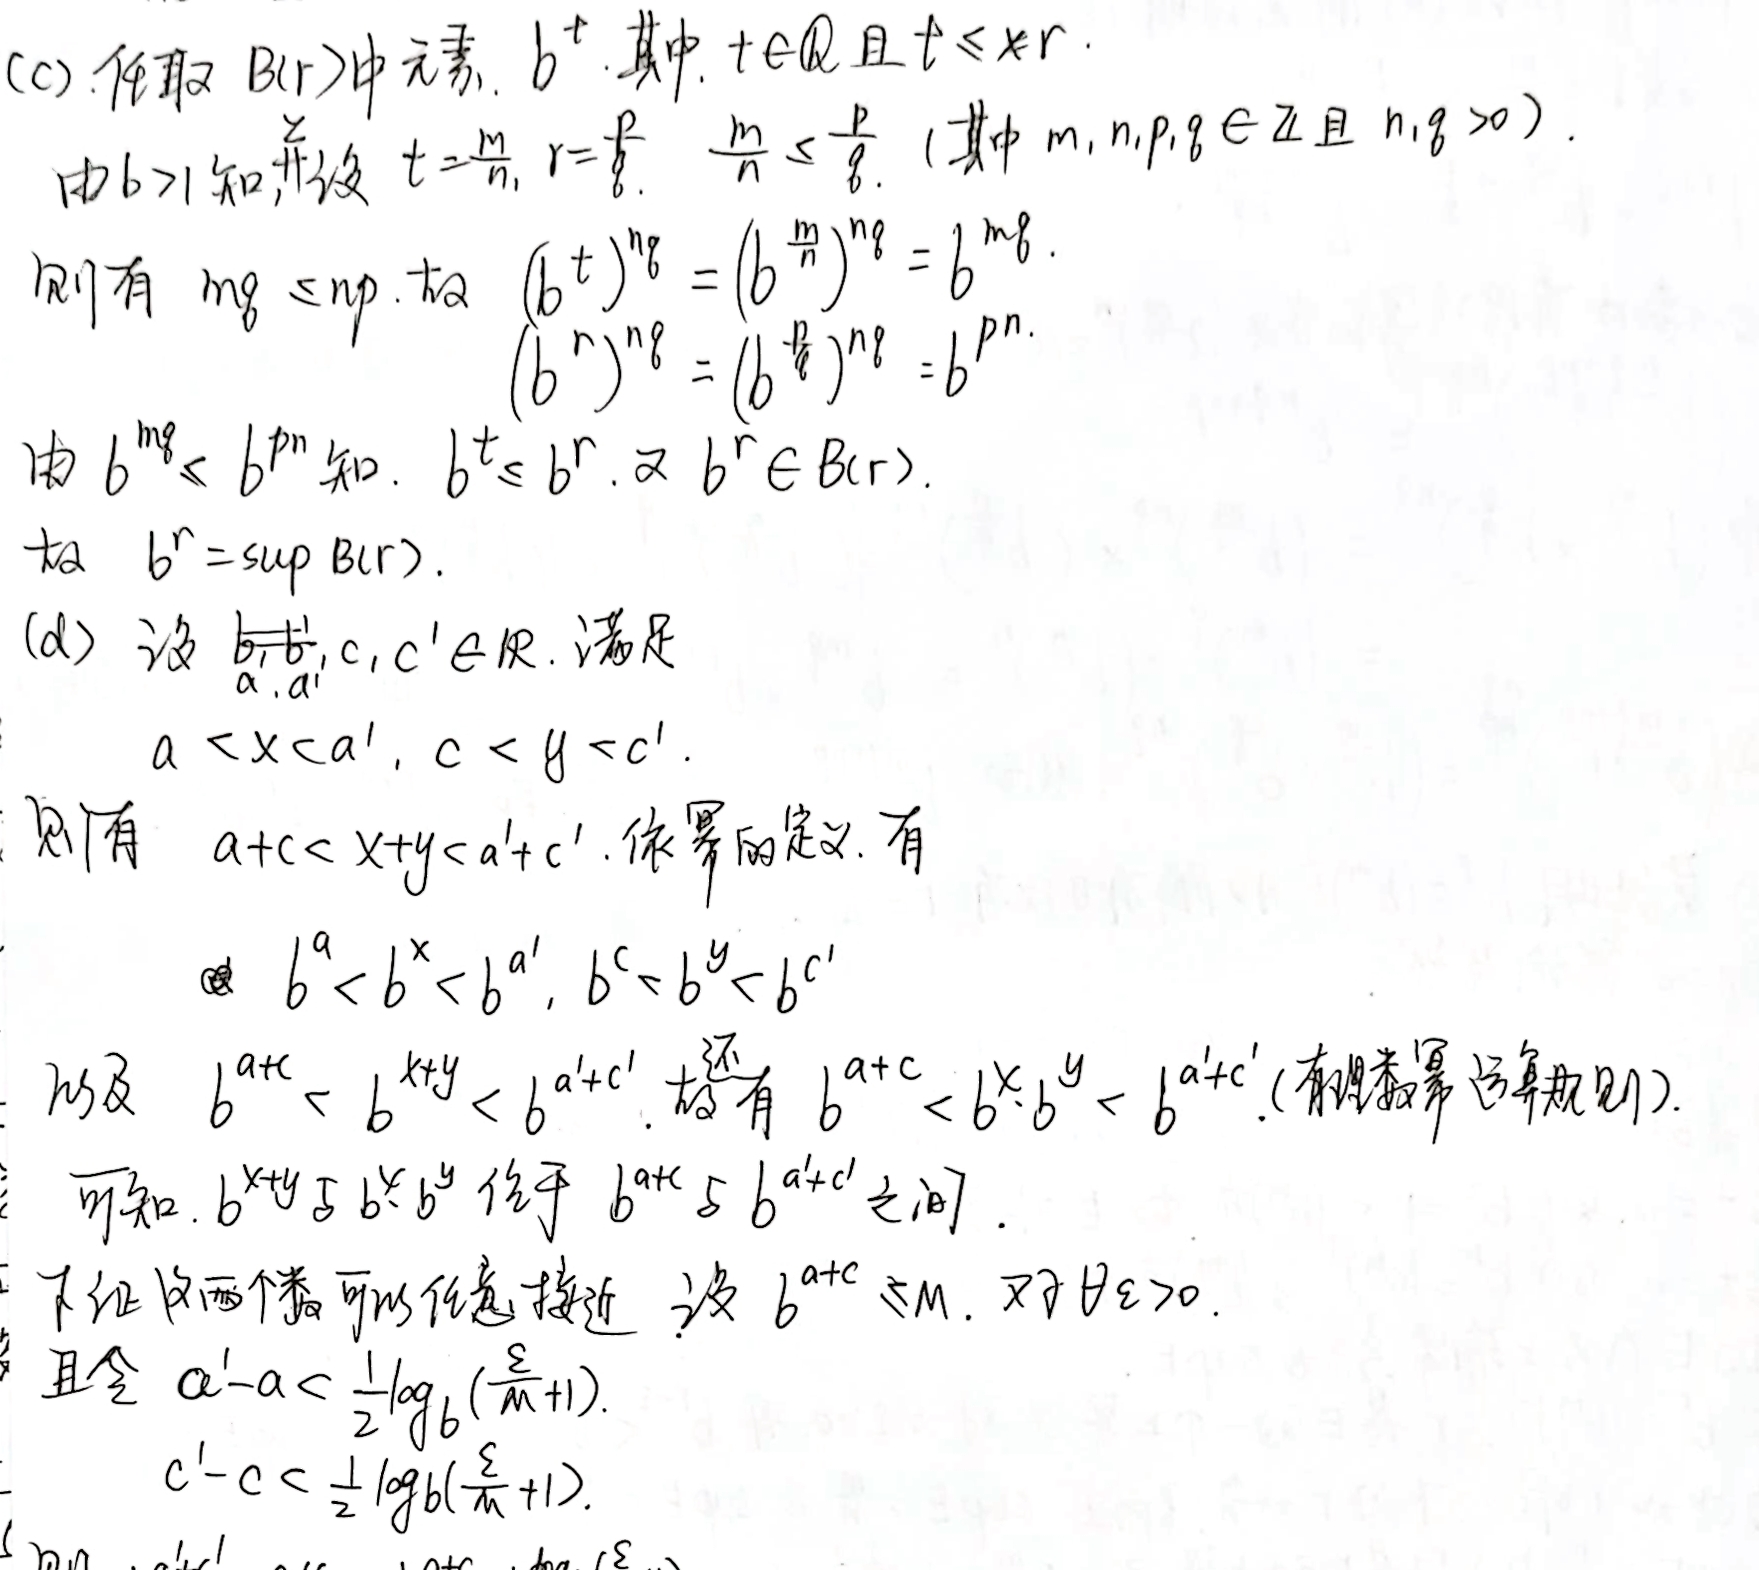 (c). 任取 B(r) 中元素. b^t. 其中. t∈ℚ 且 t ≤ r.
由 b>1 知, 并设 t = m/n, r = p/q. m/n ≤ p/q. (其中 m, n, p, q ∈ ℤ 且 n, q >0).
则有 mq ≤ np. 故 (b^t)^{nq} = (b^{m/n})^{nq} = b^{mq}.
(b^r)^{nq} = (b^{p/q})^{nq} = b^{pn}.
由 b^{mq} ≤ b^{pn} 知. b^t ≤ b^r. 又 b^r ∈ B(r).
故 b^r = sup B(r).
(d) 设 a, a', c, c' ∈ ℝ. 满足
a < x < a', c < y < c'.
则有 a+c < x+y < a'+c'. 依幂的定义. 有
b^a < b^x < b^{a'}, b^c < b^y < b^{c'}
以及 b^{a+c} < b^{x+y} < b^{a'+c'}. 还有 b^{a+c} < b^x·b^y < b^{a'+c'}. (有理数幂运算规则).
可知. b^{x+y} 与 b^x·b^y 位于 b^{a+c} 与 b^{a'+c'} 之间.
下证这两个数可以任意接近. 设 b^{a+c} ≤ M. 对 ∀ε>0.
且令 a'-a < 1/2 log_b(ε/M +1).
c'-c < 1/2 log_b(ε/M +1).